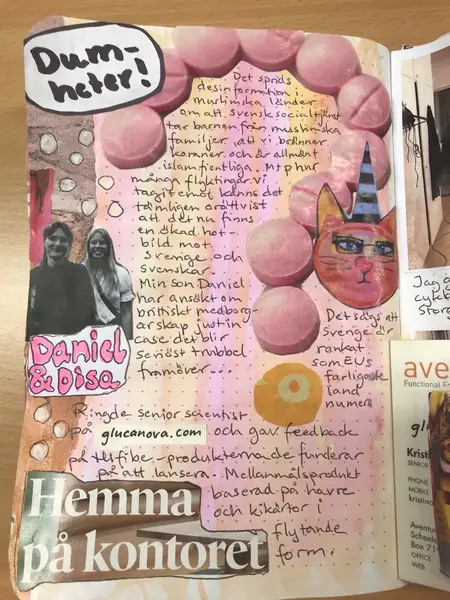 Dum-
heter!
Det sprids
desinformation i
muslimska länder
om att Svensk socialtjänst
tar barnen från muslimska
familjer, att vi bränner
koraner och är allmänt
islamfientliga. Mtp hur
många flyktingar vi
tagit emot känns det
tämligen orättvist
att det nu finns
en ökad hot-
bild mot
Sverige och
svenskar.
Min son Daniel
har ansökt om
brittiskt medborg-
arskap just in
case det blir
seriöst trubbel
framöver...
Daniel
& Disa
Det sägs att
Sverige är
rankat
som EUs
farligaste
land
numera
Ringde senior scientist
på glucanova.com och gav feedback
på Hifibe-produkterna de funderar
på att lansera. Mellanmålsprodukt
baserad på havre
och kikärtor i
flytande
form.
Hemma
på kontoret
Jag ä
cykl
Storg
ave
Functional F
Kristi
SENIOR
PHONE
MOBILE
kristina
Aventur
Scheele
Box 71
OFFICE
WEB